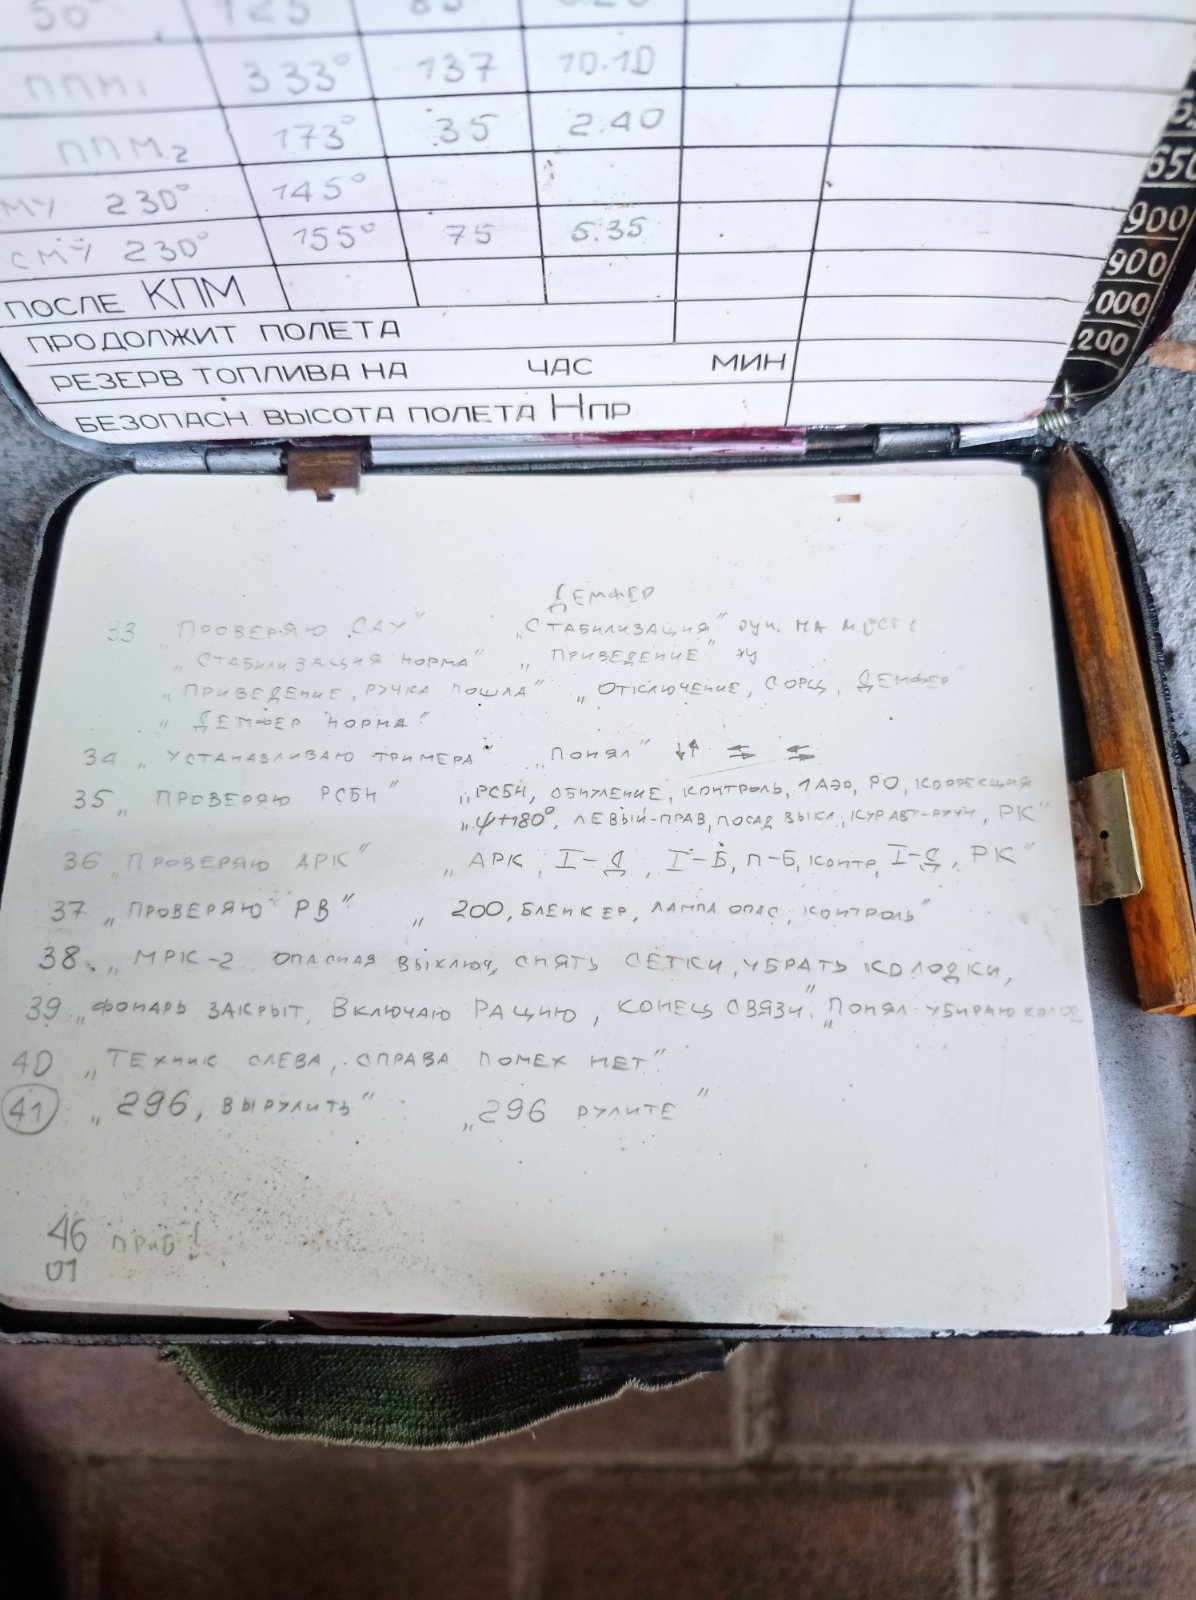 50° 125 85
ППМ1 333° 137 10.10
ППМ.2 173° 35 2.40
МУ 230° 145°
СМУ 230° 155° 75 5.35
ПОСЛЕ КПМ
ПРОДОЛЖИТ ПОЛЕТА
РЕЗЕРВ ТОПЛИВА НА ЧАС МИН
БЕЗОПАСН. ВЫСОТА ПОЛЕТА Нпр
650
900
900
000
200
ДЕМФЕР
33 ПРОВЕРЯЮ САУ" „СТАБИЛИЗАЦИЯ" НА МЕСТЕ
„СТАБИЛИЗАЦИЯ НОРМА" „ПРИВЕДЕНИЕ"
„ПРИВЕДЕНИЕ, РУЧКА ПОШЛА" „ОТКЛЮЧЕНИЕ, СОРЦ, ДЕМФЕР"
„ДЕМФЕР НОРМА"
34 „УСТАНАВЛИВАЮ ТРИМЕРА" „ПОНЯЛ" ↓↑ ⇆ ⇆
35 „ПРОВЕРЯЮ РСБН" „РСБН, ОБНУЛЕНИЕ, КОНТРОЛЬ, 1АЭР, РО, КОРРЕКЦИЯ
„Ψ+180°, ЛЕВЫЙ-ПРАВ, ПОСАД ВЫКЛ, КУР АВТ-РУЧН, РК"
36 „ПРОВЕРЯЮ АРК" „АРК, I-Д, I-Б, П-Б, КОНТР, I-Д, РК"
37 „ПРОВЕРЯЮ РВ" „200, БЛЕНКЕР, ЛАМПА ОПАС, КОНТРОЛЬ"
38. „МРК-2 ОПАСНАЯ ВЫКЛЮЧ, СНЯТЬ СЕТКИ, УБРАТЬ КОЛОДКИ,
39 „ФОНАРЬ ЗАКРЫТ, ВКЛЮЧАЮ РАЦИЮ, КОНЕЦ СВЯЗИ". „ПОНЯЛ УБИРАЮ КОЛОД
40 „ТЕХНИК СЛЕВА, СПРАВА ПОМЕХ НЕТ"
41 „296, ВЫРУЛИТЬ" „296 РУЛИТЕ"
46 ПРИБ!
01